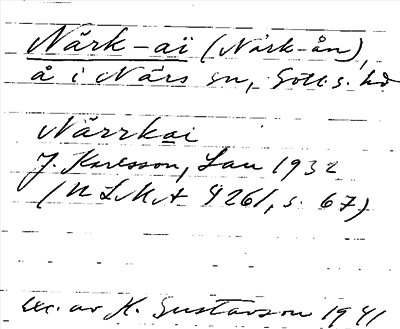 Närk-aï (Närk-ån),
å i Närs sn, Gotl. s. hd
Närrkai
J. Karlsson, Lau 1932
(NLMA 4261, s. 67)
exc. av H. Gustavson 1941